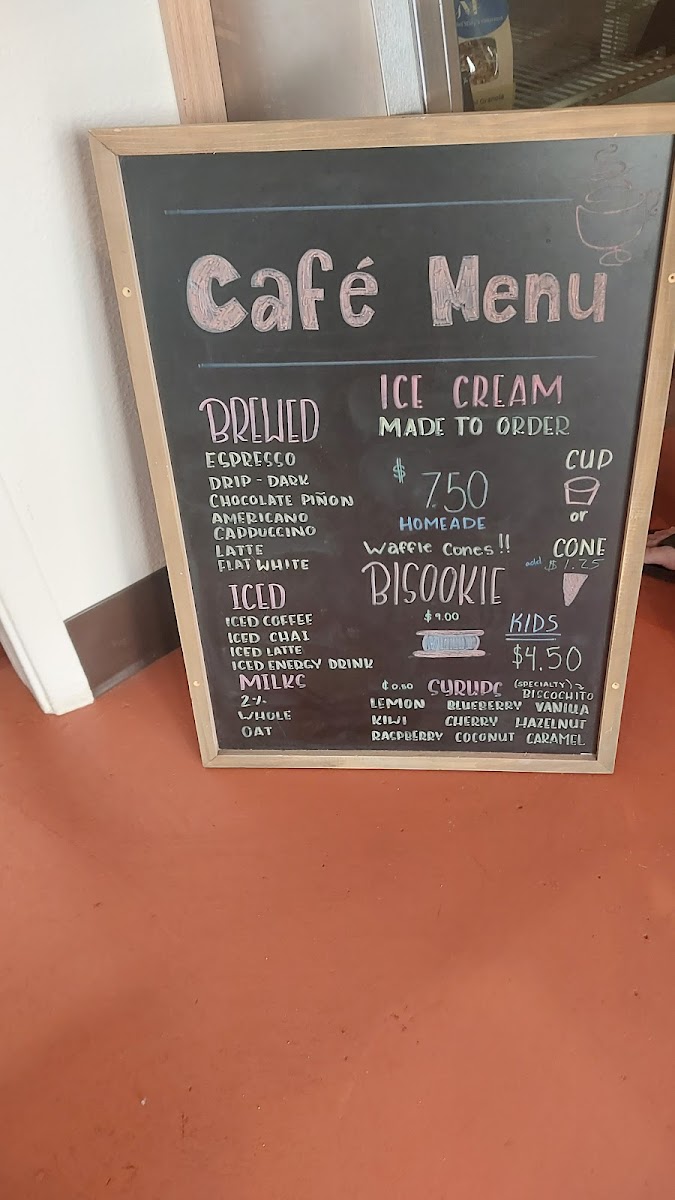 Café Menu
BREWED
ESPRESSO
DRIP - DARK
CHOCOLATE PIÑON
AMERICANO
CAPPUCCINO
LATTE
FLAT WHITE
ICED
ICED COFFEE
ICED CHAI
ICED LATTE
ICED ENERGY DRINK
MILKS
2%
WHOLE
OAT
ICE CREAM
MADE TO ORDER
$ 7.50
CUP
or
CONE
add $1.25
HOMEADE
Waffle Cones!!
BISOOKIE
$9.00
KIDS
$4.50
¢0.50 SYRUPS (SPECIALTY)
BISCOCHITO
LEMON BLUEBERRY VANILLA
KIWI CHERRY HAZELNUT
RASPBERRY COCONUT CARAMEL